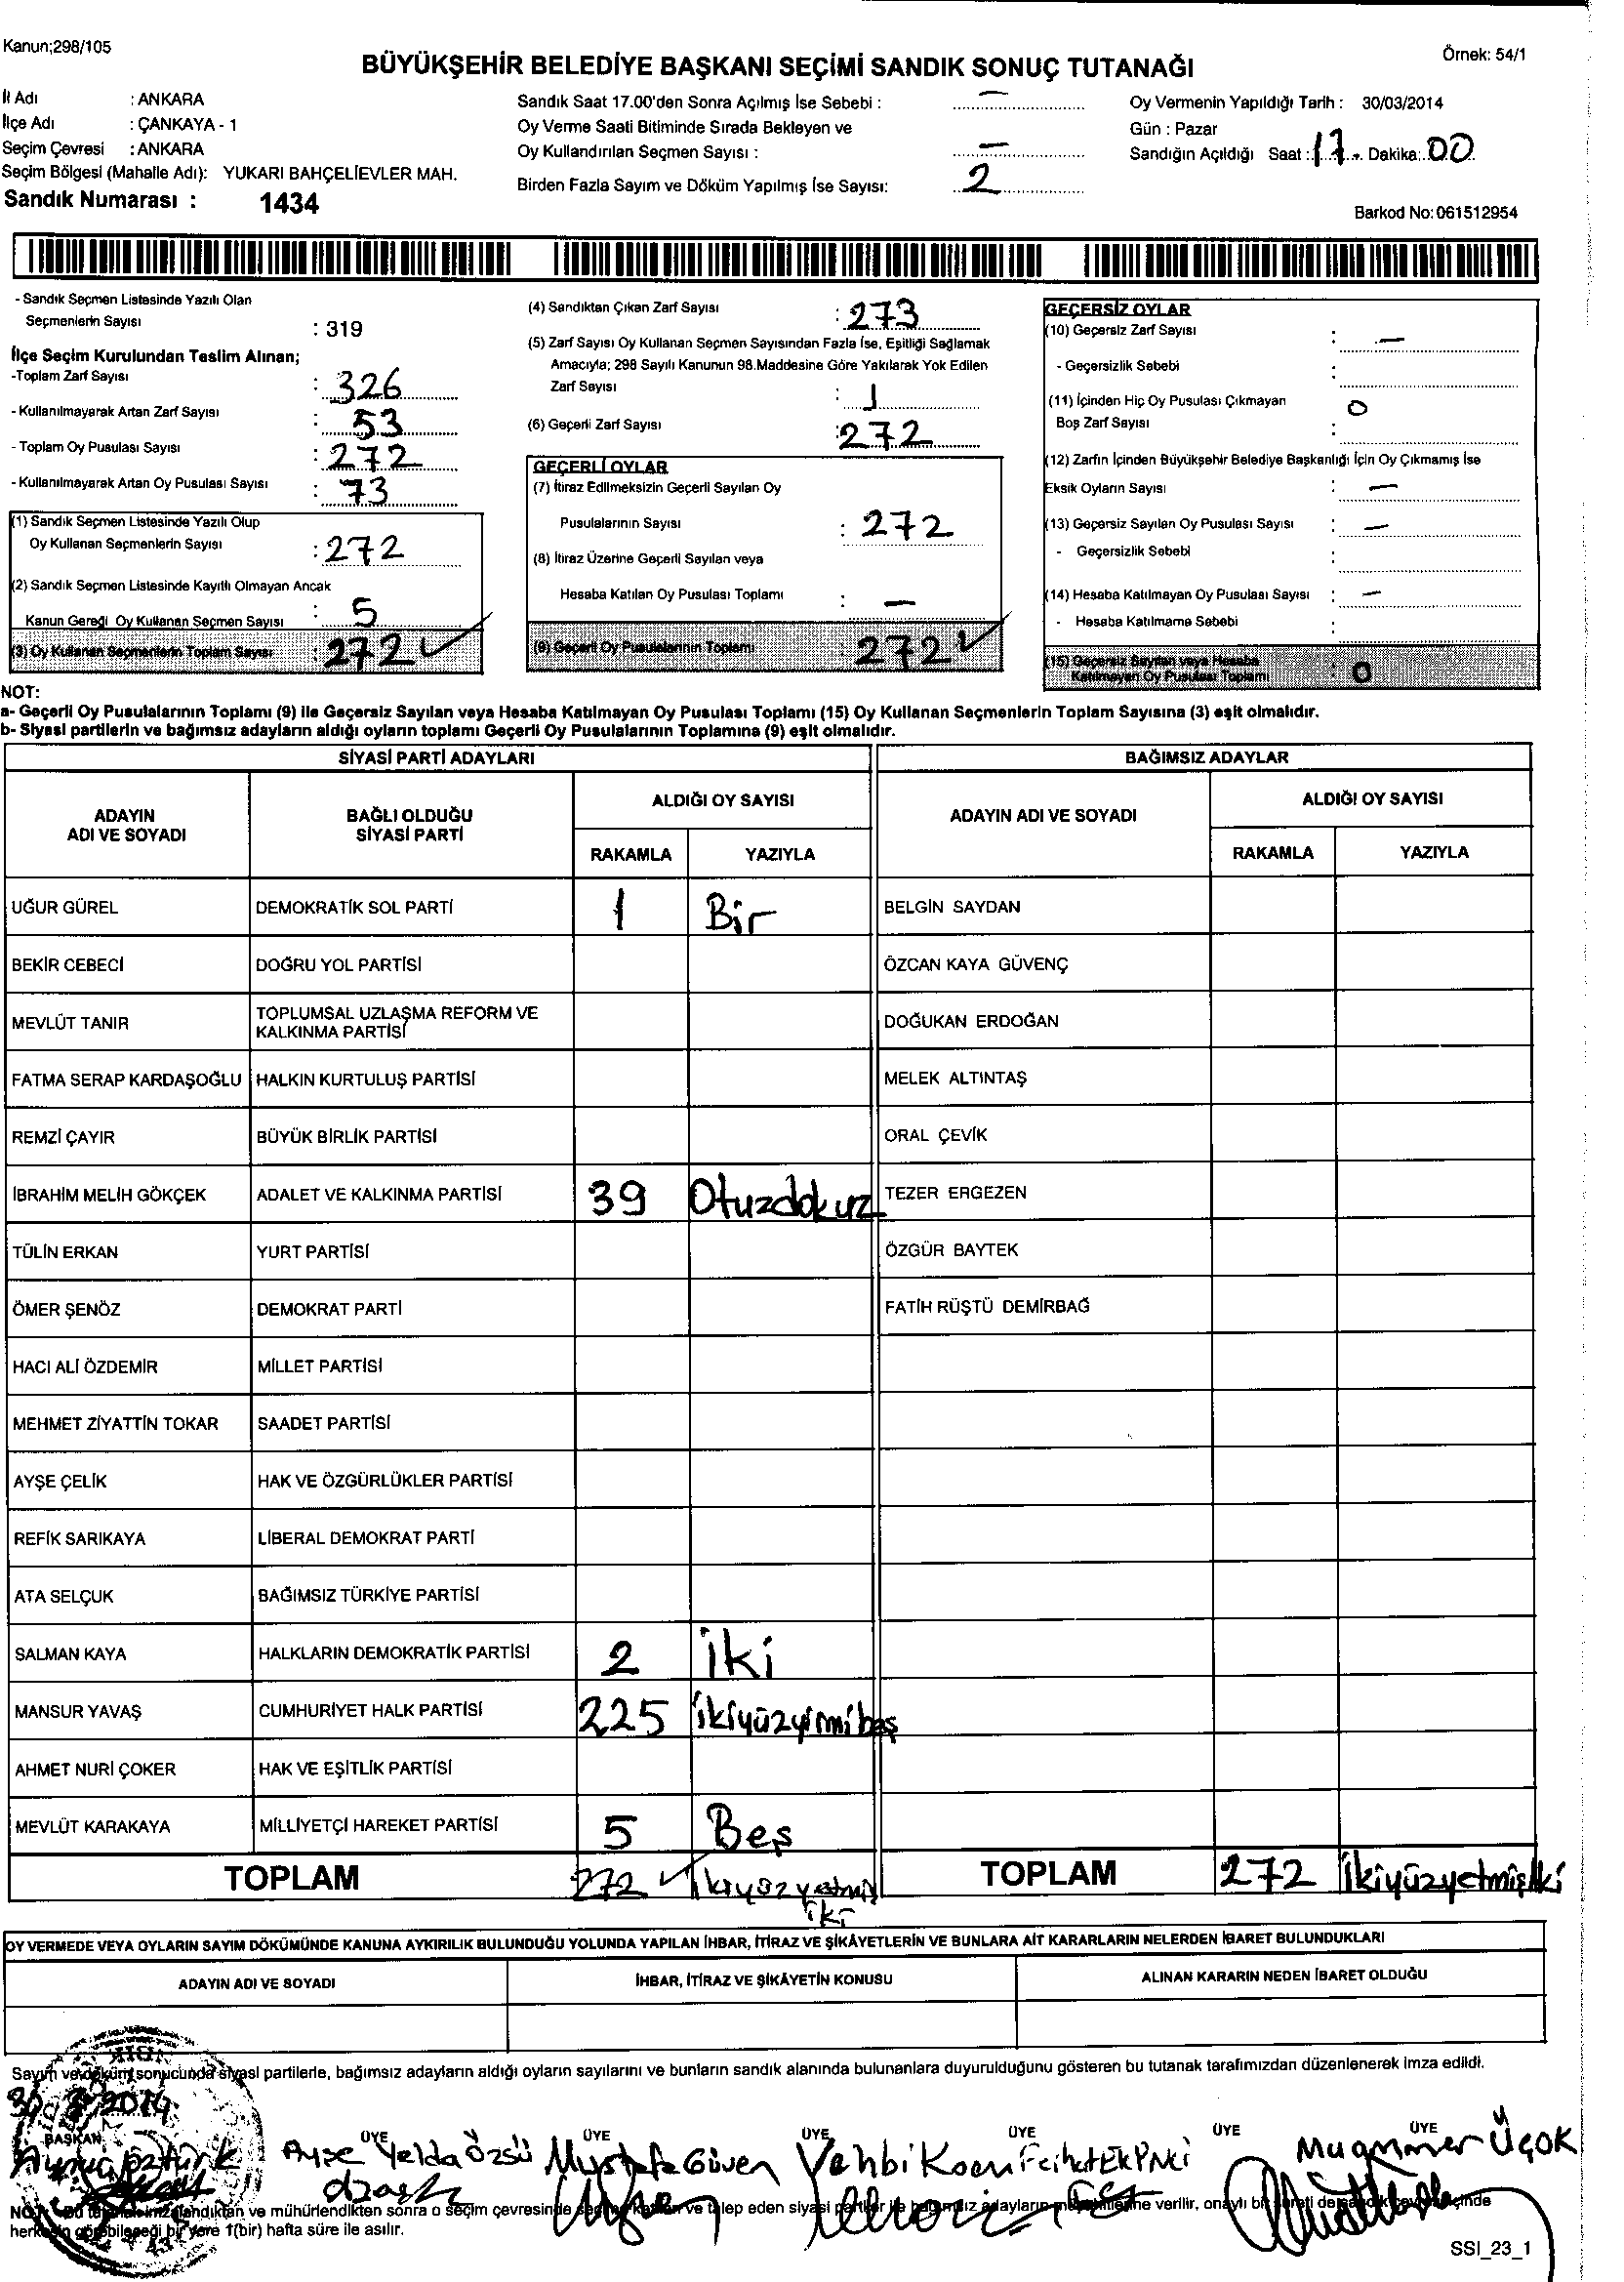 Kanun;298/105
Örnek: 54/1
BÜYÜKŞEHİR BELEDİYE BAŞKANI SEÇİMİ SANDIK SONUÇ TUTANAĞI
İl Adı : ANKARA
İlçe Adı : ÇANKAYA - 1
Seçim Çevresi : ANKARA
Seçim Bölgesi (Mahalle Adı): YUKARI BAHÇELİEVLER MAH.
Sandık Numarası : 1434
Sandık Saat 17.00'den Sonra Açılmış İse Sebebi : —
Oy Verme Saati Bitiminde Sırada Bekleyen ve
Oy Kullandırılan Seçmen Sayısı : —
Birden Fazla Sayım ve Döküm Yapılmış İse Sayısı: 2
Oy Vermenin Yapıldığı Tarih : 30/03/2014
Gün : Pazar
Sandığın Açıldığı Saat : 17 Dakika: 00
Barkod No: 061512954
- Sandık Seçmen Listesinde Yazılı Olan
Seçmenlerin Sayısı : 319
İlçe Seçim Kurulundan Teslim Alınan;
-Toplam Zarf Sayısı : 326
- Kullanılmayarak Artan Zarf Sayısı : 53
- Toplam Oy Pusulası Sayısı : 272
- Kullanılmayarak Artan Oy Pusulası Sayısı : 73
(1) Sandık Seçmen Listesinde Yazılı Olup
Oy Kullanan Seçmenlerin Sayısı : 272
(2) Sandık Seçmen Listesinde Kayıtlı Olmayan Ancak
Kanun Gereği Oy Kullanan Seçmen Sayısı : 5
(3) Oy Kullanan Seçmenlerin Toplam Sayısı : 272
(4) Sandıktan Çıkan Zarf Sayısı : 273
(5) Zarf Sayısı Oy Kullanan Seçmen Sayısından Fazla İse, Eşitliği Sağlamak
Amacıyla; 298 Sayılı Kanunun 98.Maddesine Göre Yakılarak Yok Edilen
Zarf Sayısı : 1
(6) Geçerli Zarf Sayısı : 272
GEÇERLİ OYLAR
(7) İtiraz Edilmeksizin Geçerli Sayılan Oy
Pusulalarının Sayısı : 272
(8) İtiraz Üzerine Geçerli Sayılan veya
Hesaba Katılan Oy Pusulası Toplamı : —
(9) Geçerli Oy Pusulalarının Toplamı 272
GEÇERSİZ OYLAR
(10) Geçersiz Zarf Sayısı : —
- Geçersizlik Sebebi :
(11) İçinden Hiç Oy Pusulası Çıkmayan 0
Boş Zarf Sayısı :
(12) Zarfın İçinden Büyükşehir Belediye Başkanlığı İçin Oy Çıkmamış İse
Eksik Oyların Sayısı : —
(13) Geçersiz Sayılan Oy Pusulası Sayısı : —
- Geçersizlik Sebebi :
(14) Hesaba Katılmayan Oy Pusulası Sayısı : —
- Hesaba Katılmama Sebebi :
(15) Geçersiz Sayılan veya Hesaba
Katılmayan Oy Pusulası Toplamı : 0
NOT:
a- Geçerli Oy Pusulalarının Toplamı (9) ile Geçersiz Sayılan veya Hesaba Katılmayan Oy Pusulası Toplamı (15) Oy Kullanan Seçmenlerin Toplam Sayısına (3) eşit olmalıdır.
b- Siyasi partilerin ve bağımsız adayların aldığı oyların toplamı Geçerli Oy Pusulalarının Toplamına (9) eşit olmalıdır.
SİYASİ PARTİ ADAYLARI BAĞIMSIZ ADAYLAR
ADAYIN
ADI VE SOYADI
BAĞLI OLDUĞU
SİYASİ PARTİ
ALDIĞI OY SAYISI
RAKAMLA YAZIYLA
ADAYIN ADI VE SOYADI
ALDIĞI OY SAYISI
RAKAMLA YAZIYLA
UĞUR GÜREL DEMOKRATİK SOL PARTİ 1 Bir BELGİN SAYDAN
BEKİR CEBECİ DOĞRU YOL PARTİSİ ÖZCAN KAYA GÜVENÇ
MEVLÜT TANIR TOPLUMSAL UZLAŞMA REFORM VE
KALKINMA PARTİSİ DOĞUKAN ERDOĞAN
FATMA SERAP KARDAŞOĞLU HALKIN KURTULUŞ PARTİSİ MELEK ALTINTAŞ
REMZİ ÇAYIR BÜYÜK BİRLİK PARTİSİ ORAL ÇEVİK
İBRAHİM MELİH GÖKÇEK ADALET VE KALKINMA PARTİSİ 39 Otuzdokuz TEZER ERGEZEN
TÜLİN ERKAN YURT PARTİSİ ÖZGÜR BAYTEK
ÖMER ŞENÖZ DEMOKRAT PARTİ FATİH RÜŞTÜ DEMİRBAĞ
HACI ALİ ÖZDEMİR MİLLET PARTİSİ
MEHMET ZİYATTİN TOKAR SAADET PARTİSİ
AYŞE ÇELİK HAK VE ÖZGÜRLÜKLER PARTİSİ
REFİK SARIKAYA LİBERAL DEMOKRAT PARTİ
ATA SELÇUK BAĞIMSIZ TÜRKİYE PARTİSİ
SALMAN KAYA HALKLARIN DEMOKRATİK PARTİSİ 2 İki
MANSUR YAVAŞ CUMHURİYET HALK PARTİSİ 225 ikiyüzyirmibeş
AHMET NURİ ÇOKER HAK VE EŞİTLİK PARTİSİ
MEVLÜT KARAKAYA MİLLİYETÇİ HAREKET PARTİSİ 5 Beş
TOPLAM 272 ikiyüzyetmiş
iki
TOPLAM 272 ikiyüzyetmişiki
OY VERMEDE VEYA OYLARIN SAYIM DÖKÜMÜNDE KANUNA AYKIRILIK BULUNDUĞU YOLUNDA YAPILAN İHBAR, İTİRAZ VE ŞİKÂYETLERİN VE BUNLARA AİT KARARLARIN NELERDEN İBARET BULUNDUKLARI
ADAYIN ADI VE SOYADI İHBAR, İTİRAZ VE ŞİKÂYETİN KONUSU ALINAN KARARIN NEDEN İBARET OLDUĞU
Sayım ve döküm sonucunda siyasi partilerle, bağımsız adayların aldığı oyların sayılarını ve bunların sandık alanında bulunanlara duyurulduğunu gösteren bu tutanak tarafımızdan düzenlenerek imza edildi.
30 3 2014
BAŞKAN ÜYE ÜYE ÜYE ÜYE ÜYE ÜYE
Ayşe Yelda Özsü Mustafa Güven Vehbi Muammer Üçok
NOT: Bu tutanak imzalandıktan ve mühürlendikten sonra o seçim çevresinde seçime katılan ve talep eden siyasi partiler ile bağımsız adayların müşahitlerine verilir, onaylı bir sureti de sandık çevresi içinde
herkesin görebileceği bir yere 1(bir) hafta süre ile asılır.
SSI_23_1